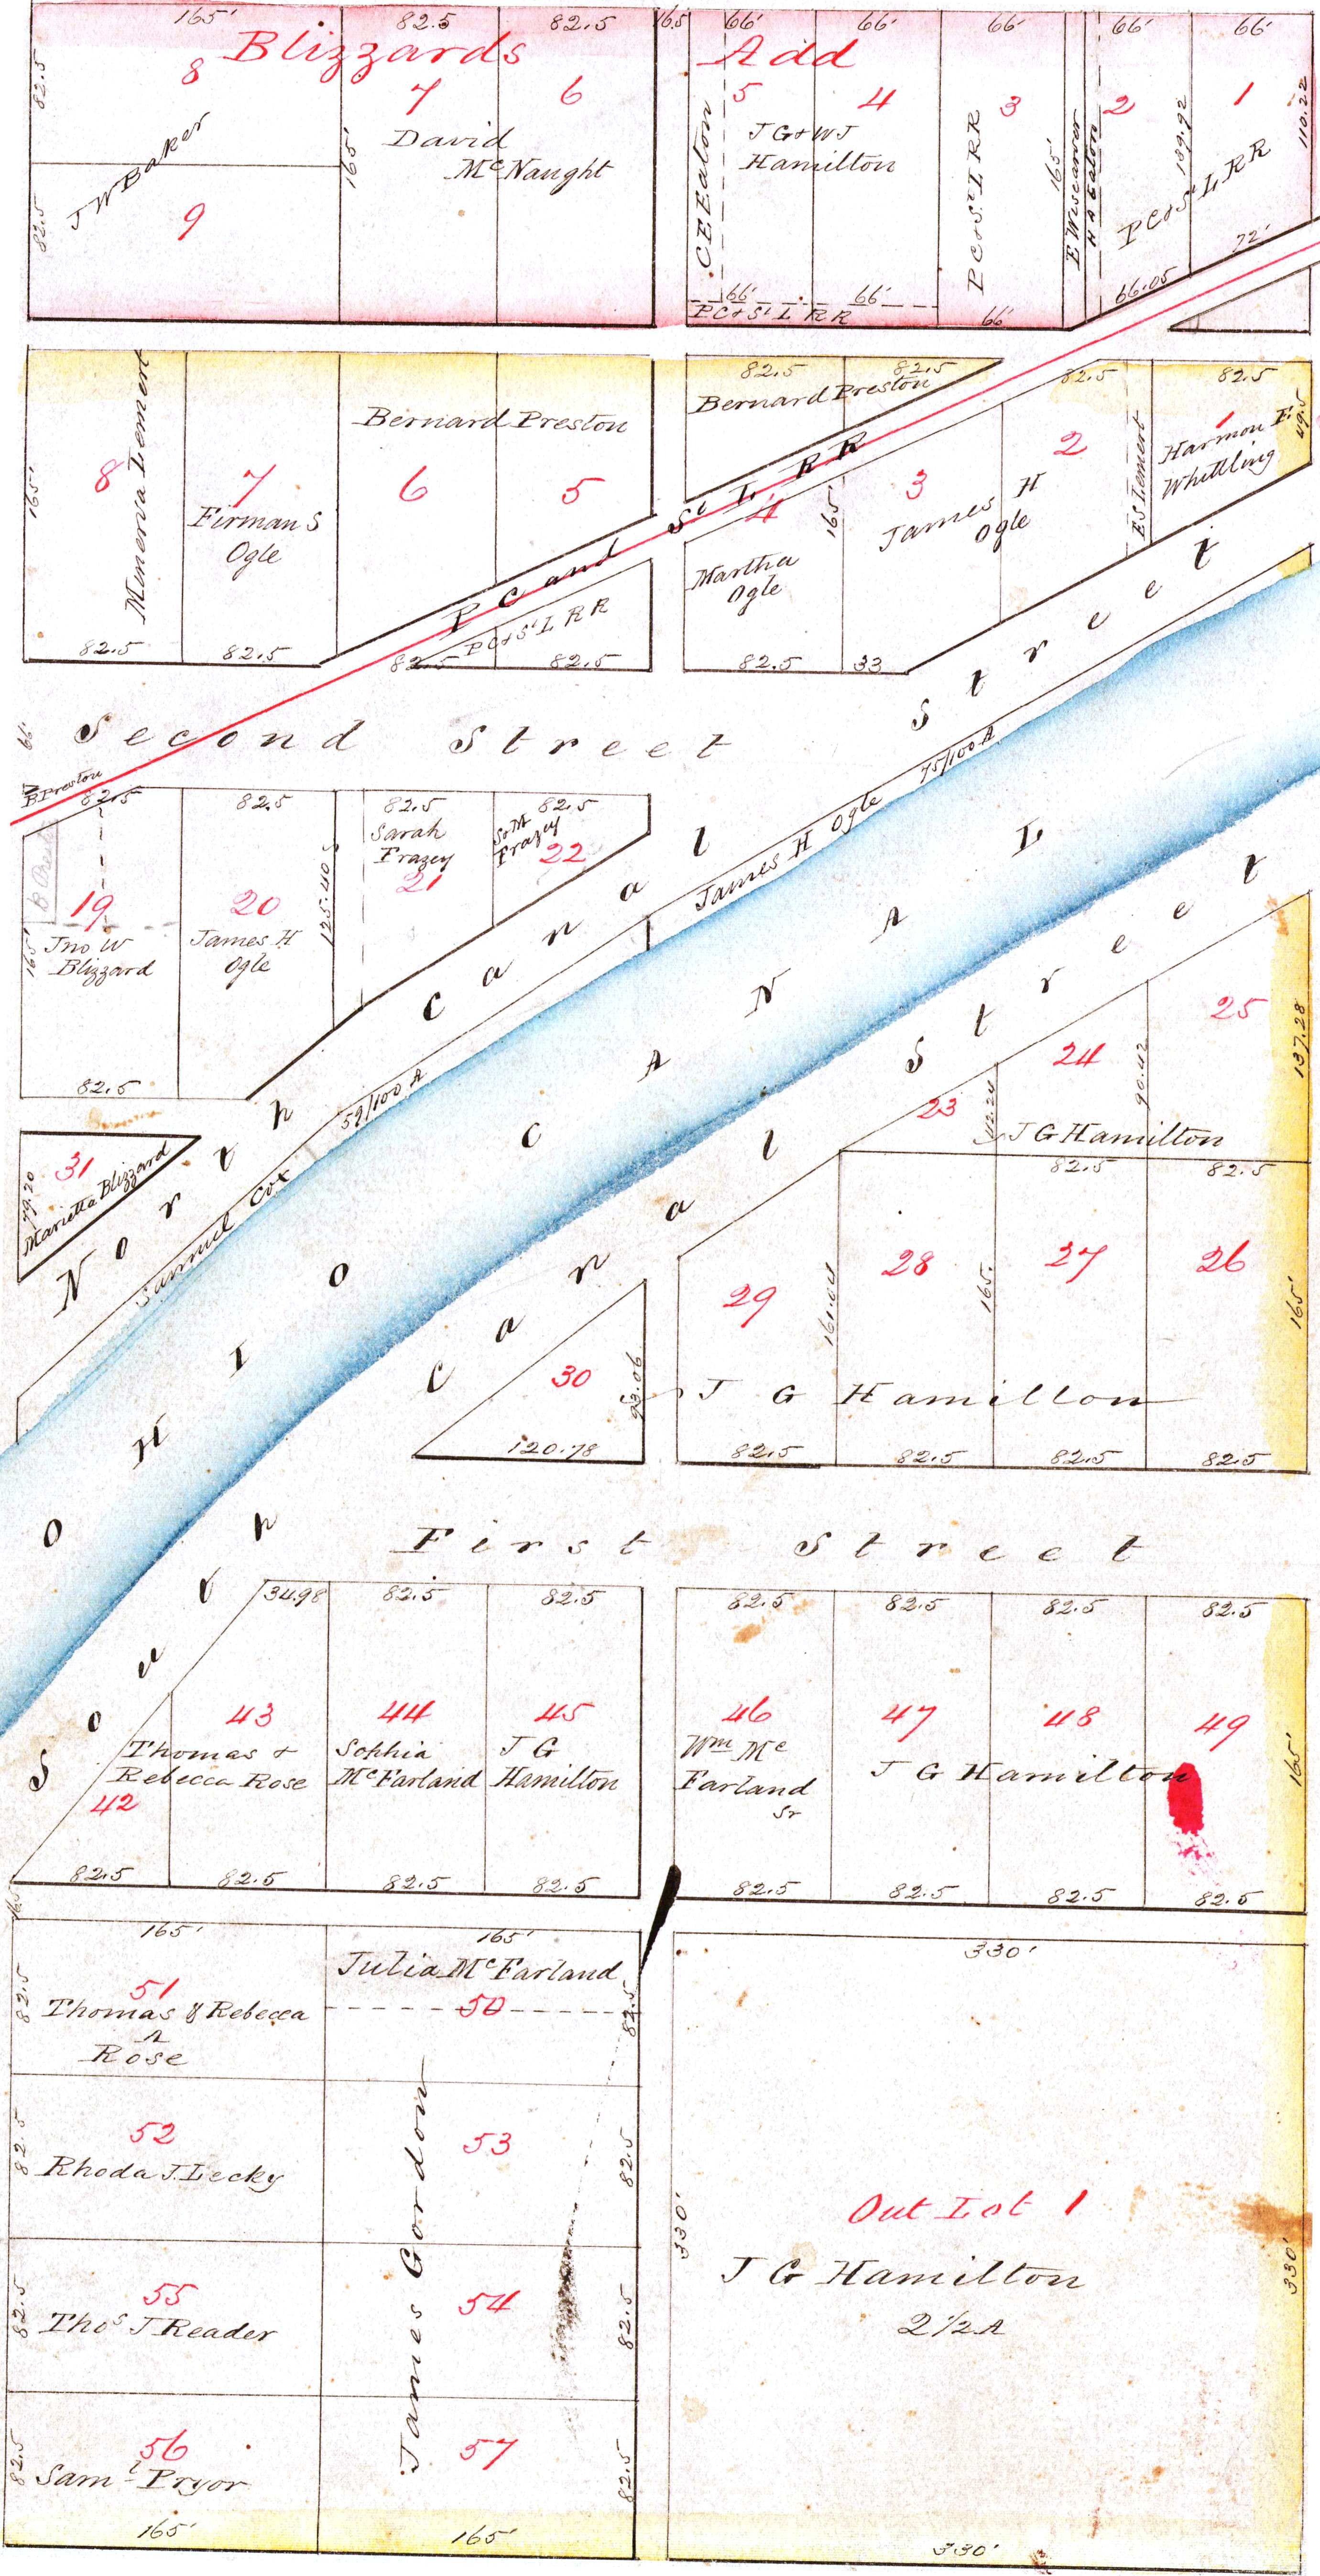 165' 82.5 82.5 165 66' 66' 66' 66' 66'
Blizzards Add
8 7 6 5 4 3 2 1
82.5
165'
165'
189.92
110.22
J W Baker
David
McNaught
C E Eaton
J G & W J
Hamilton
P C & St L R R
E Wiscarver
H A Eaton
P C & St L R R
82.5
9
72'
66.05
66' 66'
P C & St L R R
66'
82.5 82.5 82.5 82.5
Bernard Preston
Bernard Preston
49.5
165'
8 7 6 5 4 3 2 1
Minerva Lemert
Firman S
Ogle
Martha
Ogle
165'
James H
Ogle
E S Lemert
Harmon F.
Whittling
P C and St L R R
P C & St L R R
82.5 82.5 82.5 82.5 82.5 33
66'
Second Street
B Preston
82.5 82.5 82.5 82.5
Sarah
Frazey
21
S & M
Frazey
22
19
Jno W
Blizzard
165'
20
James H
Ogle
125.40
82.5
North Canal Street
James H Ogle 75/100 A
Samuel Cox 59/100 A
31
Marietta Blizzard
79.20
OHIO CANAL
South Canal Street
25
137.28
24
90.42
23
42.24
J G Hamilton
82.5 82.5
29 28 27 26
161.04
165.
165'
30
93.06
120.78
J G Hamilton
82.5 82.5 82.5 82.5
First Street
34.98 82.5 82.5 82.5 82.5 82.5 82.5
43 44 45 46 47 48 49
Thomas &
Rebecca Rose
42
Sophia
McFarland
J G
Hamilton
Wm Mc
Farland
Sr
J G Hamilton
165'
82.5 82.5 82.5 82.5 82.5 82.5 82.5 82.5
16.5
165' 165' 330'
Julia McFarland
50
82.5
82.5
51
Thomas & Rebecca
A
Rose
82.5
52
Rhoda J. Lecky
53
82.5
James Gordon
82.5
55
Thos J Reader
54
82.5
82.5
56
Saml Pryor
57
82.5
165' 165'
330'
Out Lot 1
J G Hamilton
2 1/2 A
330'
330'